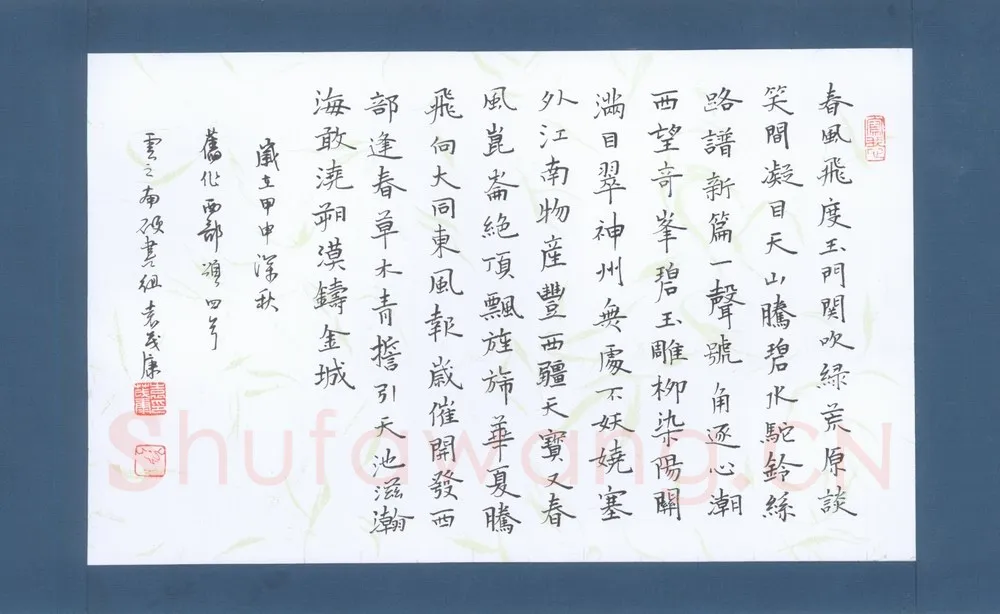 春風飛度玉門関吹緑荒原談
笑間凝目天山騰碧水駝鈴絲
路譜新篇一聲號角逐心潮
西望奇峯碧玉雕柳染陽關
滿目翠神州無處不妖嬈塞
外江南物産豐西疆天寶又春
風崑崙絶頂飄旌旆華夏騰
飛向大同東風報歳催開發西
部逢春草木青擔引天池滋瀚
海敢澆朔漠鑄金城
歲在甲申深秋
舊作西部頌四首
雲之南硬書組袁茂康
Shufawang.CN